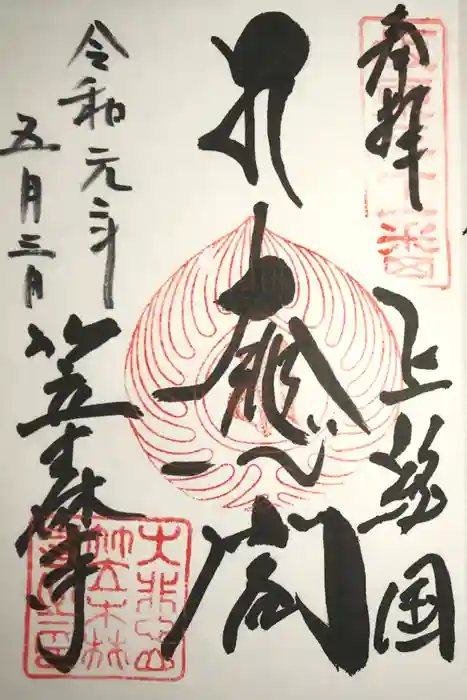 奉拝
上総国
大悲閣
令和元年
五月三日
笠森寺
大悲山